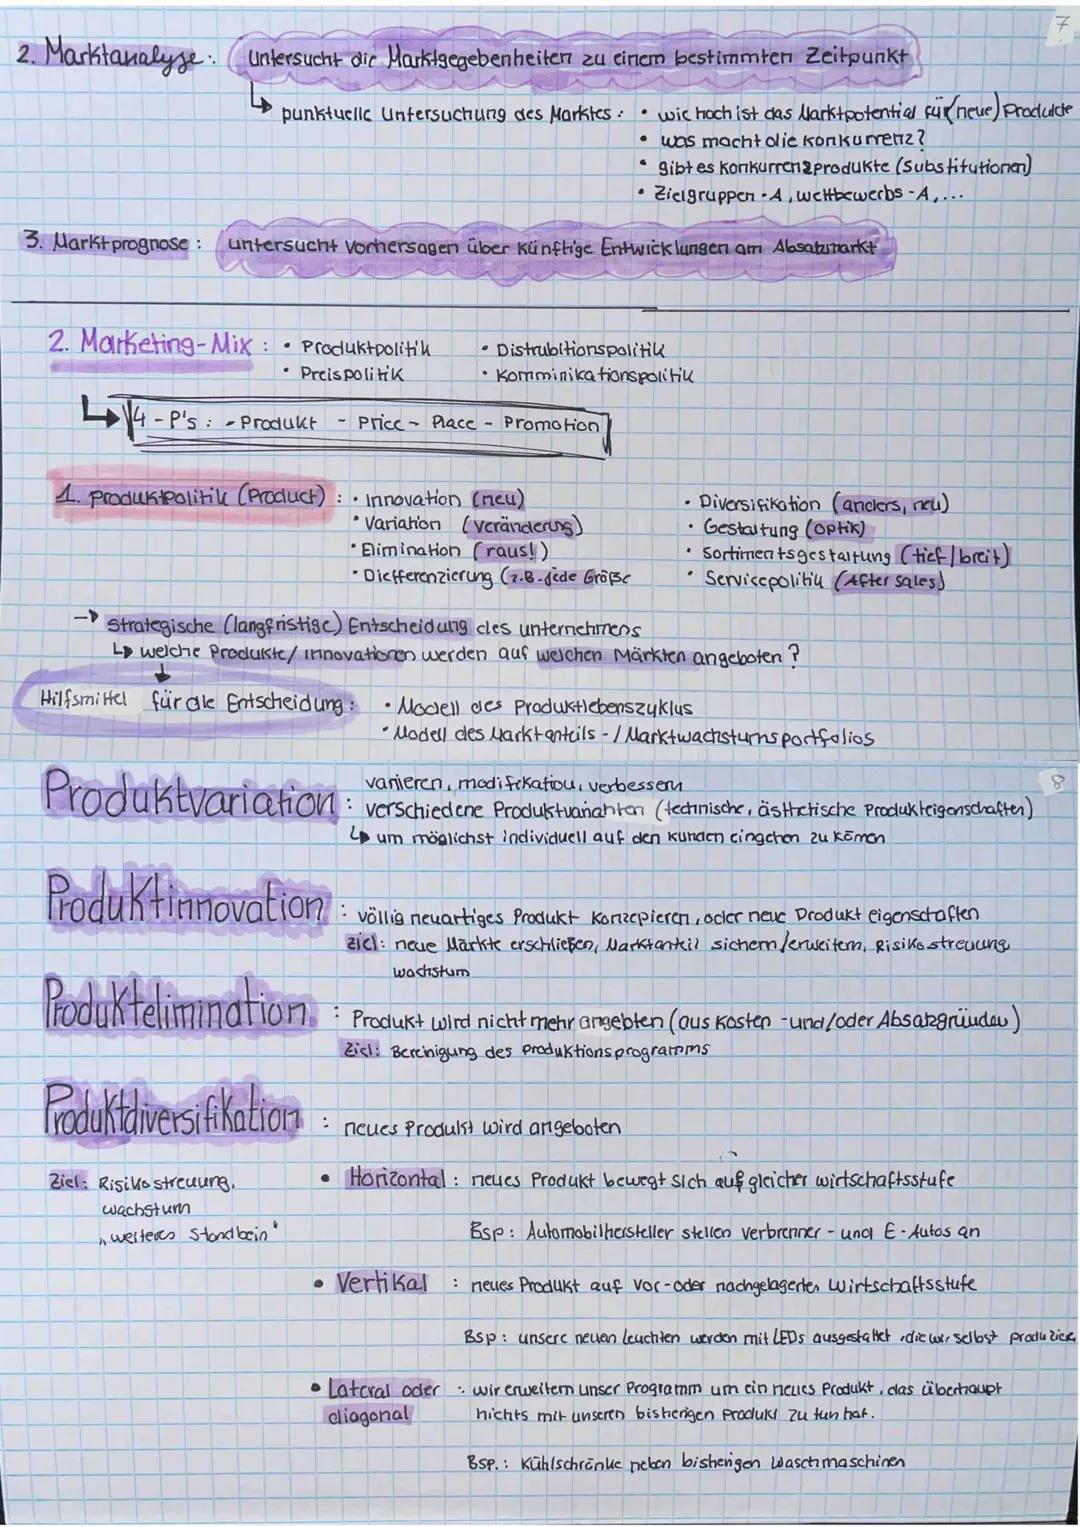 7
2. Marktanalyse: untersucht die Marktgegebenheiten zu einem bestimmten Zeitpunkt
↳ punktuelle Untersuchung des Marktes: • wie hoch ist das Marktpotential für (neue) Produkte
• was macht die Konkurrenz?
• gibt es Konkurrenzprodukte (Substitutionen)
• Zielgruppen-A, wettbewerbs-A,...
3. Marktprognose: untersucht Vorhersagen über künftige Entwicklungen am Absatzmarkt
2. Marketing-Mix: • Produktpolitik • Distrubitionspolitik
• Preispolitik • Komminikationspolitik
↳ 4-P's: - Produkt - Price - Place - Promotion
1. Produktpolitik (Product): • Innovation (neu) • Diversifikation (anders, neu)
• Variation (Veränderung) • Gestaltung (Optik)
• Elimination (raus!) • Sortimentsgestaltung (tief/breit)
• Diefferenzierung (z.B. jede Größe • Servicepolitik (After sales)
→ Strategische (langfristige) Entscheidung des unternehmens
↳ welche Produkte/Innovationen werden auf welchen Märkten angeboten?
↓
Hilfsmittel für die Entscheidung: • Modell des Produktlebenszyklus
• Modell des Marktanteils-/Marktwachstumsportfolios
8
variieren, modifikation, verbessern
Produktvariation: verschiedene Produktvarianten (technische, ästhetische Produkteigenschaften)
↳ um möglichst individuell auf den Kunden eingehen zu können
Produktinnovation: völlig neuartiges Produkt konzepieren, oder neue Produkteigenschaften
Ziel: neue Märkte erschließen, Marktanteil sichern/erweitern, Risikostreuung
wachstum
Produktelimination: Produkt wird nicht mehr angebten (aus Kosten-und/oder Absatzgründen)
Ziel: Bereinigung des Produktionsprogramms
Produktdiversifikation: neues Produkt wird angeboten
Ziel: Risikostreuung, • Horizontal: neues Produkt bewegt sich auf gleicher wirtschaftsstufe
wachstum
„weiteres Standbein" Bsp: Automobilhersteller stellen verbrenner- und E-Autos an
• Vertikal: neues Produkt auf vor-oder nachgelagerter Wirtschaftsstufe
Bsp: unsere neuen Leuchten werden mit LEDs ausgestattet, die wir selbst produzieren
• Lateral oder: wir erweitern unser Programm um ein neues Produkt, das überhaupt
diagonal nichts mit unseren bisherigen Produkt zu tun hat.
Bsp.: Kühlschränke neben bisherigen Waschmaschinen